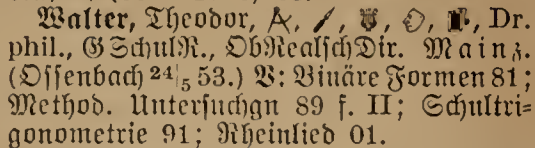 Walter, Theodor, Dr.
phil., GSchulR., ObRealschDir. Mainz.
(Offenbach 24/5 53.) V: Binäre Formen 81;
Method. Untersuchgn 89 f. II; Schultri=
gonometrie 91; Rheinlied 01.